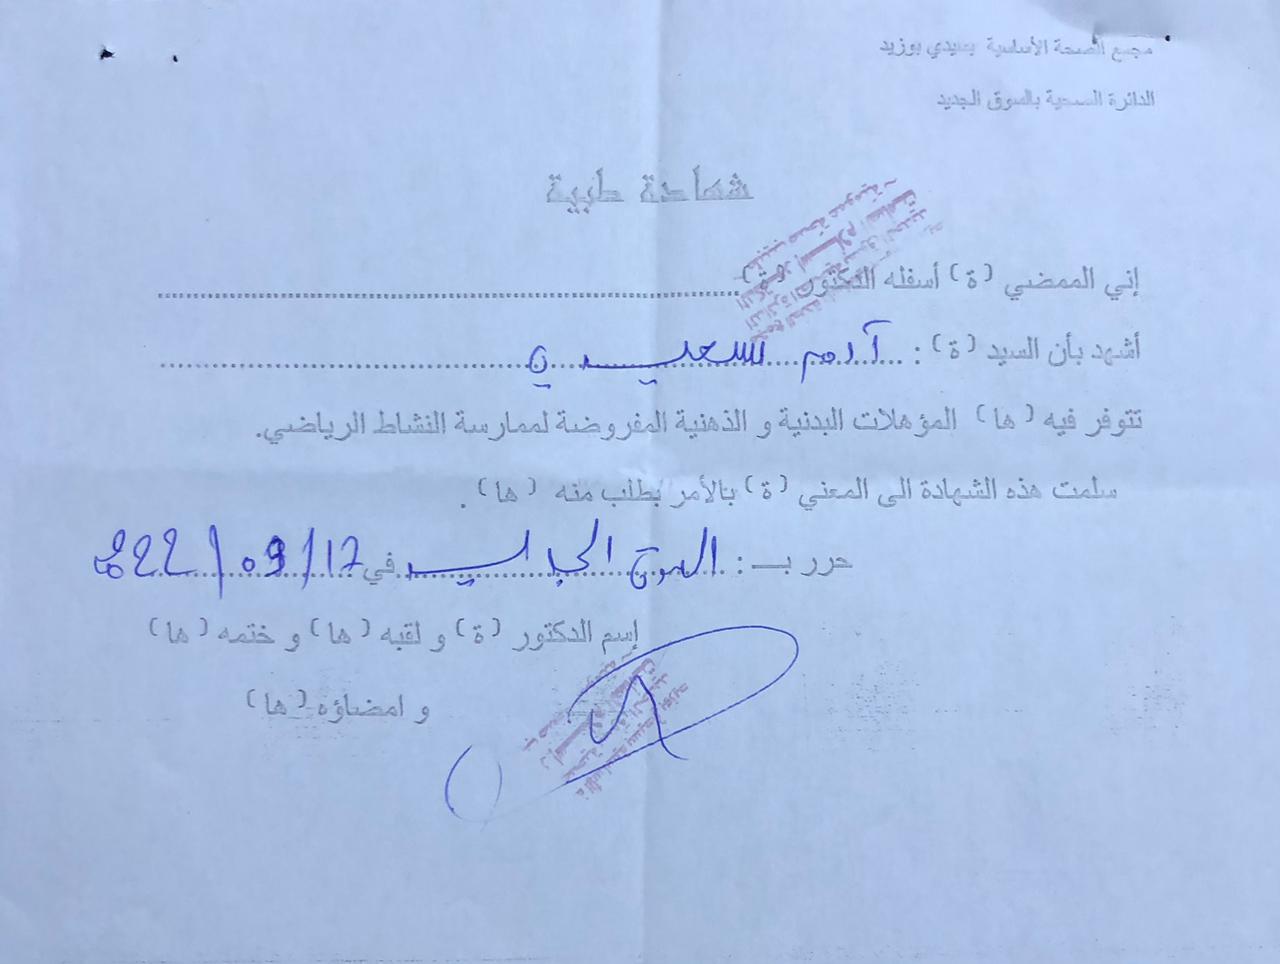 مجمع الصحة الأساسية بسيدي بوزيد
الدائرة الصحية بالسوق الجديد
شهادة طبية
إني الممضي (ة) أسفله الدكتور (ة)
أشهد بأن السيد (ة) : آدم السعيدي
تتوفر فيه (ها) المؤهلات البدنية و الذهنية المفروضة لممارسة النشاط الرياضي.
سلمت هذه الشهادة الى المعني (ة) بالأمر بطلب منه (ها) .
حرر بـ : السوق الجديد في 17/09/2022
إسم الدكتور (ة) و لقبه (ها) و ختمه (ها)
و امضاؤه (ها)